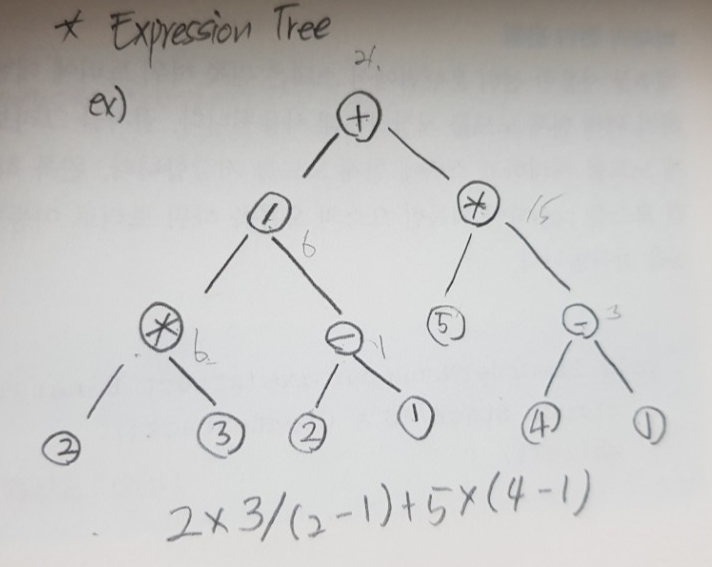 * Expression Tree
21.
ex)
+
/ * 15
6
* 6 - 1 5 - 3
2 3 2 1 4 1
2×3/(2-1)+5×(4-1)